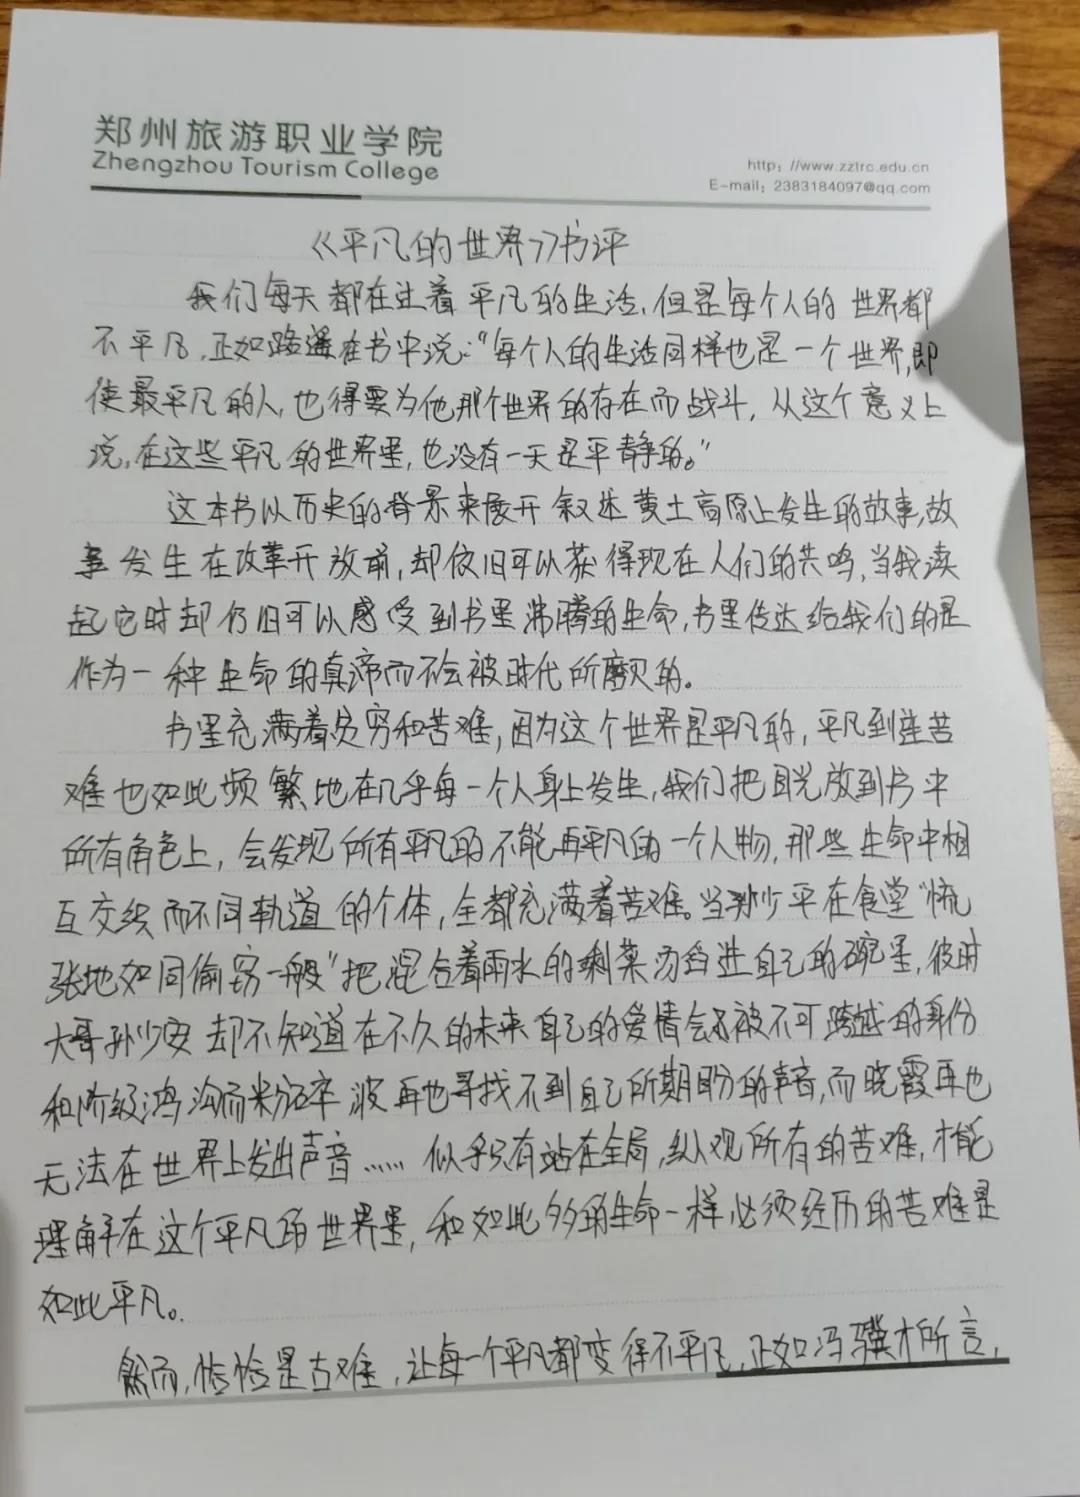 郑州旅游职业学院
Zhengzhou Tourism College
http://www.zztrc.edu.cn
E-mail: 2383184097@qq.com
《平凡的世界》书评
我们每天都在过着平凡的生活,但是每个人的世界都
不平凡,正如路遥在书中说:“每个人的生活同样也是一个世界,即
使最平凡的人,也得要为他那个世界的存在而战斗,从这个意义上
说,在这些平凡的世界里,也没有一天是平静的。”
这本书以历史的背景来展开叙述黄土高原上发生的故事,故
事发生在改革开放前,却依旧可以获得现在人们的共鸣,当我读
起它时却仍旧可以感受到书里沸腾的生命,书里传达给我们的是
作为一种生命的真谛而不会被时代所磨灭的。
书里充满着贫穷和苦难,因为这个世界是平凡的,平凡到连苦
难也如此频繁地在几乎每一个人身上发生,我们把目光放到书中
所有角色上,会发现所有平凡的不能再平凡的一个人物,那些生命中相
互交织而不同轨道的个体,全都充满着苦难。当孙少平在食堂“慌
张地如同偷窃一般”把混合着雨水的剩菜汤舀进自己的碗里,彼时
大哥孙少安却不知道在不久的未来自己的爱情会被不可跨越的身份
和阶级鸿沟而粉碎 波再也寻找不到自己所期盼的声音,而晓霞再也
无法在世界上发出声音…… 似乎只有站在全局,纵观所有的苦难,才能
理解在这个平凡的世界里,和如此多的生命一样必须经历的苦难是
如此平凡。
然而,恰恰是苦难,让每一个平凡都变得不平凡,正如冯骥才所言,